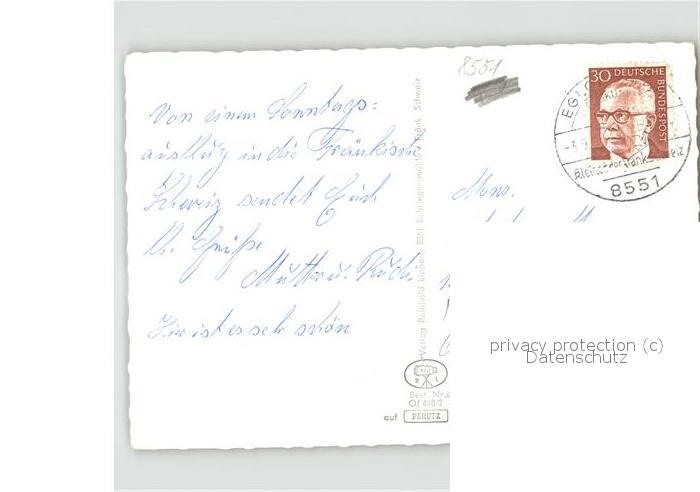 8551
Von einem Sonntags=
ausflug in die Fränkische
Schweiz sendet Euch
lb. Grüße
Mutter u. Rudi
Hier ist es sehr schön
Mons.
30 DEUTSCHE
BUNDESPOST
8551
Verlag Reinhold Lippert, 8551 Fränk. Schweiz
Best. Nr.
Of 448/2
auf PERUTZ
privacy protection (c)
Datenschutz